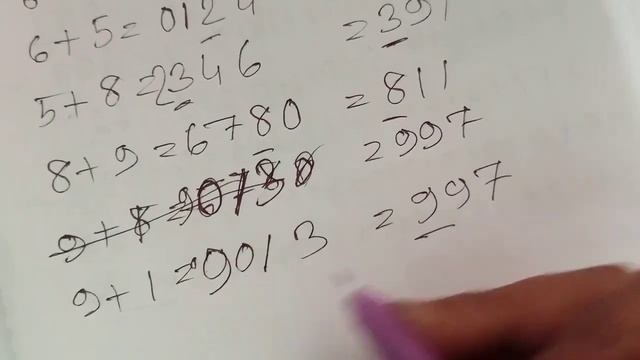 6+5=0124 =391
5+8=2346 =811
8+9=6780 =997
9+1=9013 =997